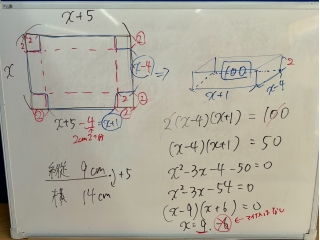 x+5
2 2 2
x
x-4
⇒
2 2
2 2
x+5-4=x+1
2cm2つ分
100
2
x+1
x-4
2(x-4)(x+1)=100
(x-4)(x+1)=50
x²-3x-4-50=0
x²-3x-54=0
(x-9)(x+6)=0
x=9, -6
縦 9cm
+5
横 14cm